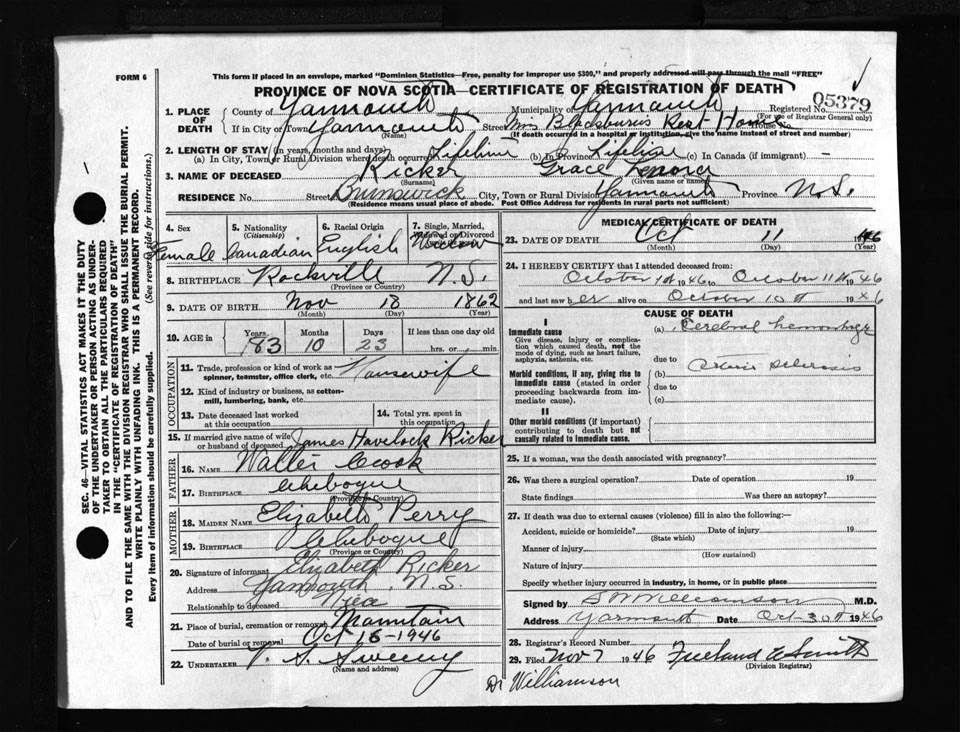 FORM 6
This form if placed in an envelope, marked "Dominion Statistics—Free, penalty for improper use $300," and properly addressed will pass through the mail "FREE"
PROVINCE OF NOVA SCOTIA—CERTIFICATE OF REGISTRATION OF DEATH
1. PLACE OF DEATH
County of Yarmouth Municipality of Yarmouth Registered No. 05379
(For use of Registrar General only)
If in City or Town Yarmouth Street Mrs Blackburn's Rest Home House No.
(If death occurred in a hospital or institution, give the name instead of street and number)
2. LENGTH OF STAY (in years, months and days)
(a) In City, Town or Rural Division where death occurred Lifetime (b) In Province Lifetime (c) In Canada (if immigrant) —
3. NAME OF DECEASED Ricker Grace Lenora
(Surname) (Given name or names)
RESIDENCE No. Street Brunswick City, Town or Rural Division Yarmouth Province N.S.
(Residence means usual place of abode. Post Office Address for residents in rural parts not sufficient)
4. Sex 5. Nationality (Citizenship) 6. Racial Origin 7. Single, Married, Widowed or Divorced
Female Canadian English Widow
8. BIRTHPLACE Rockville N.S.
(Province or Country)
9. DATE OF BIRTH Nov 18 1862
(Month) (Day) (Year)
10. AGE in Years Months Days If less than one day old
83 10 23 hrs. or min.
OCCUPATION
11. Trade, profession or kind of work as spinner, teamster, office clerk, etc. Housewife
12. Kind of industry or business, as cotton-mill, lumbering, bank, etc.
13. Date deceased last worked at this occupation
14. Total yrs. spent in this occupation
15. If married give name of wife or husband of deceased James Havelock Ricker
FATHER
16. NAME Walter Crook
17. BIRTHPLACE Chebogue
(Province or Country)
MOTHER
18. MAIDEN NAME Elizabeth Perry
19. BIRTHPLACE Chebogue
(Province or Country)
20. Signature of informant Elizabeth Ricker
Address Yarmouth, N.S.
Relationship to deceased
21. Place of burial, cremation or removal Mountain
Date of burial or removal Oct 13-1946
22. UNDERTAKER V. S. Sweeny
(Name and address)
MEDICAL CERTIFICATE OF DEATH
23. DATE OF DEATH Oct 11 1946
(Month) (Day)
24. I HEREBY CERTIFY that I attended deceased from:
October 1946 to October 11th 1946
and last saw her alive on October 10th 1946
CAUSE OF DEATH
I
Immediate cause
Give disease, injury or complication which caused death, not the mode of dying, such as heart failure, asphyxia, asthenia, etc.
(a) Cerebral hemorrhage
due to
Morbid conditions, if any, giving rise to immediate cause (stated in order proceeding backwards from immediate cause).
(b) Arterio sclerosis
due to
(c)
II
Other morbid conditions (if important) contributing to death but not causally related to immediate cause.
25. If a woman, was the death associated with pregnancy?
26. Was there a surgical operation? Date of operation 19
State findings Was there an autopsy?
27. If death was due to external causes (violence) fill in also the following:
Accident, suicide or homicide? Date of injury 19
(State which)
Manner of injury
(How sustained)
Nature of injury
Specify whether injury occurred in industry, in home, or in public place
Signed by S W Williamson M.D.
Address Yarmouth Date Oct 30th 1946
28. Registrar's Record Number
29. Filed Nov 7 1946 Freeland W Smith
(Division Registrar)
Dr Williamson
SEC. 46—VITAL STATISTICS ACT MAKES IT THE DUTY
OF THE UNDERTAKER OR PERSON ACTING AS UNDER-
TAKER TO OBTAIN ALL THE PARTICULARS REQUIRED
IN THE "CERTIFICATE OF REGISTRATION OF DEATH"
AND TO FILE THE SAME WITH THE DIVISION REGISTRAR WHO SHALL ISSUE THE BURIAL PERMIT.
WRITE PLAINLY WITH UNFADING INK. THIS IS A PERMANENT RECORD.
Every item of information should be carefully supplied. (See reverse side for instructions.)